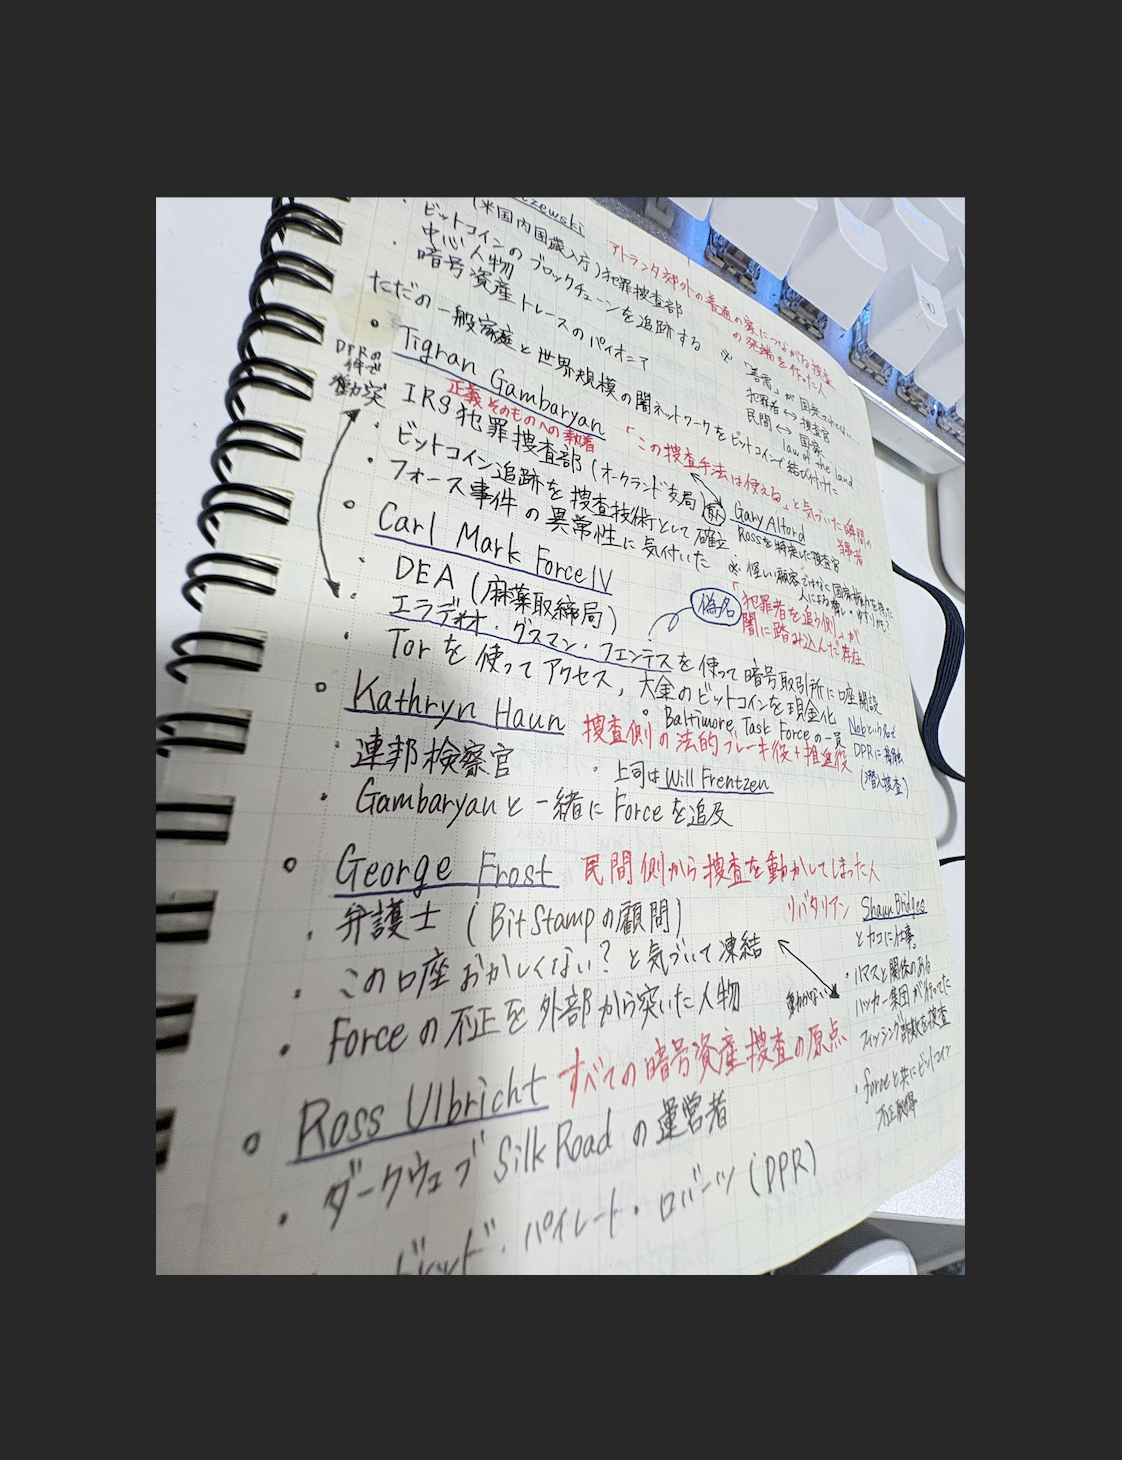 (米国内国歳入庁)犯罪捜査部
アトランタ郊外の普通の家につながる捜査
の発端を作った人
ビットコインのブロックチェーンを追跡する
中心人物
暗号資産トレースのパイオニア
ただの一般家庭と世界規模の闇ネットワークをビットコインで結び付けた
※ 「善悪」が
犯罪者 ↔ 捜査官
民間 ↔ 国家
law of the land
DPRの
件で
衝突
Tigran Gambaryan
正義そのものへの執着
IRS犯罪捜査部(オークランド支局)
「この捜査手法は使える」と気づいた瞬間の
当事者
ビットコイン追跡を捜査技術として確立
フォース事件の異常性に気付いた
Gary Alford
Rossを特定した捜査官
Carl Mark Force IV
※ 怪しい顧客ではなく国家権力を持った
人による
DEA (麻薬取締局)
偽名
「犯罪者を追う側」が
闇に踏み込んだ存在
エラディオ・グスマン・フエンテスを使って暗号取引所に口座開設
Torを使ってアクセス, 大金のビットコインを現金化
Baltimore Task Forceの一員
Nobという名で
DPRに接触
(潜入捜査)
Kathryn Haun
捜査側の法的ブレーキ役+推進役
連邦検察官
上司はWill Frentzen
Gambaryanと一緒にForceを追及
George Frost
民間側から捜査を動かしてしまった人
弁護士 (BitStampの顧問)
リバタリアン
この口座おかしくない?と気づいて凍結
Forceの不正を外部から突いた人物
動かない
Shaun Bridges
とカコに仕事
ハマスと関係のある
ハッカー集団が行ってた
フィッシング詐欺を捜査
Forceと共にビットコイン
不正取得
Ross Ulbricht
すべての暗号資産捜査の原点
ダークウェブ Silk Road の運営者
ドレッド・パイレート・ロバーツ (DPR)